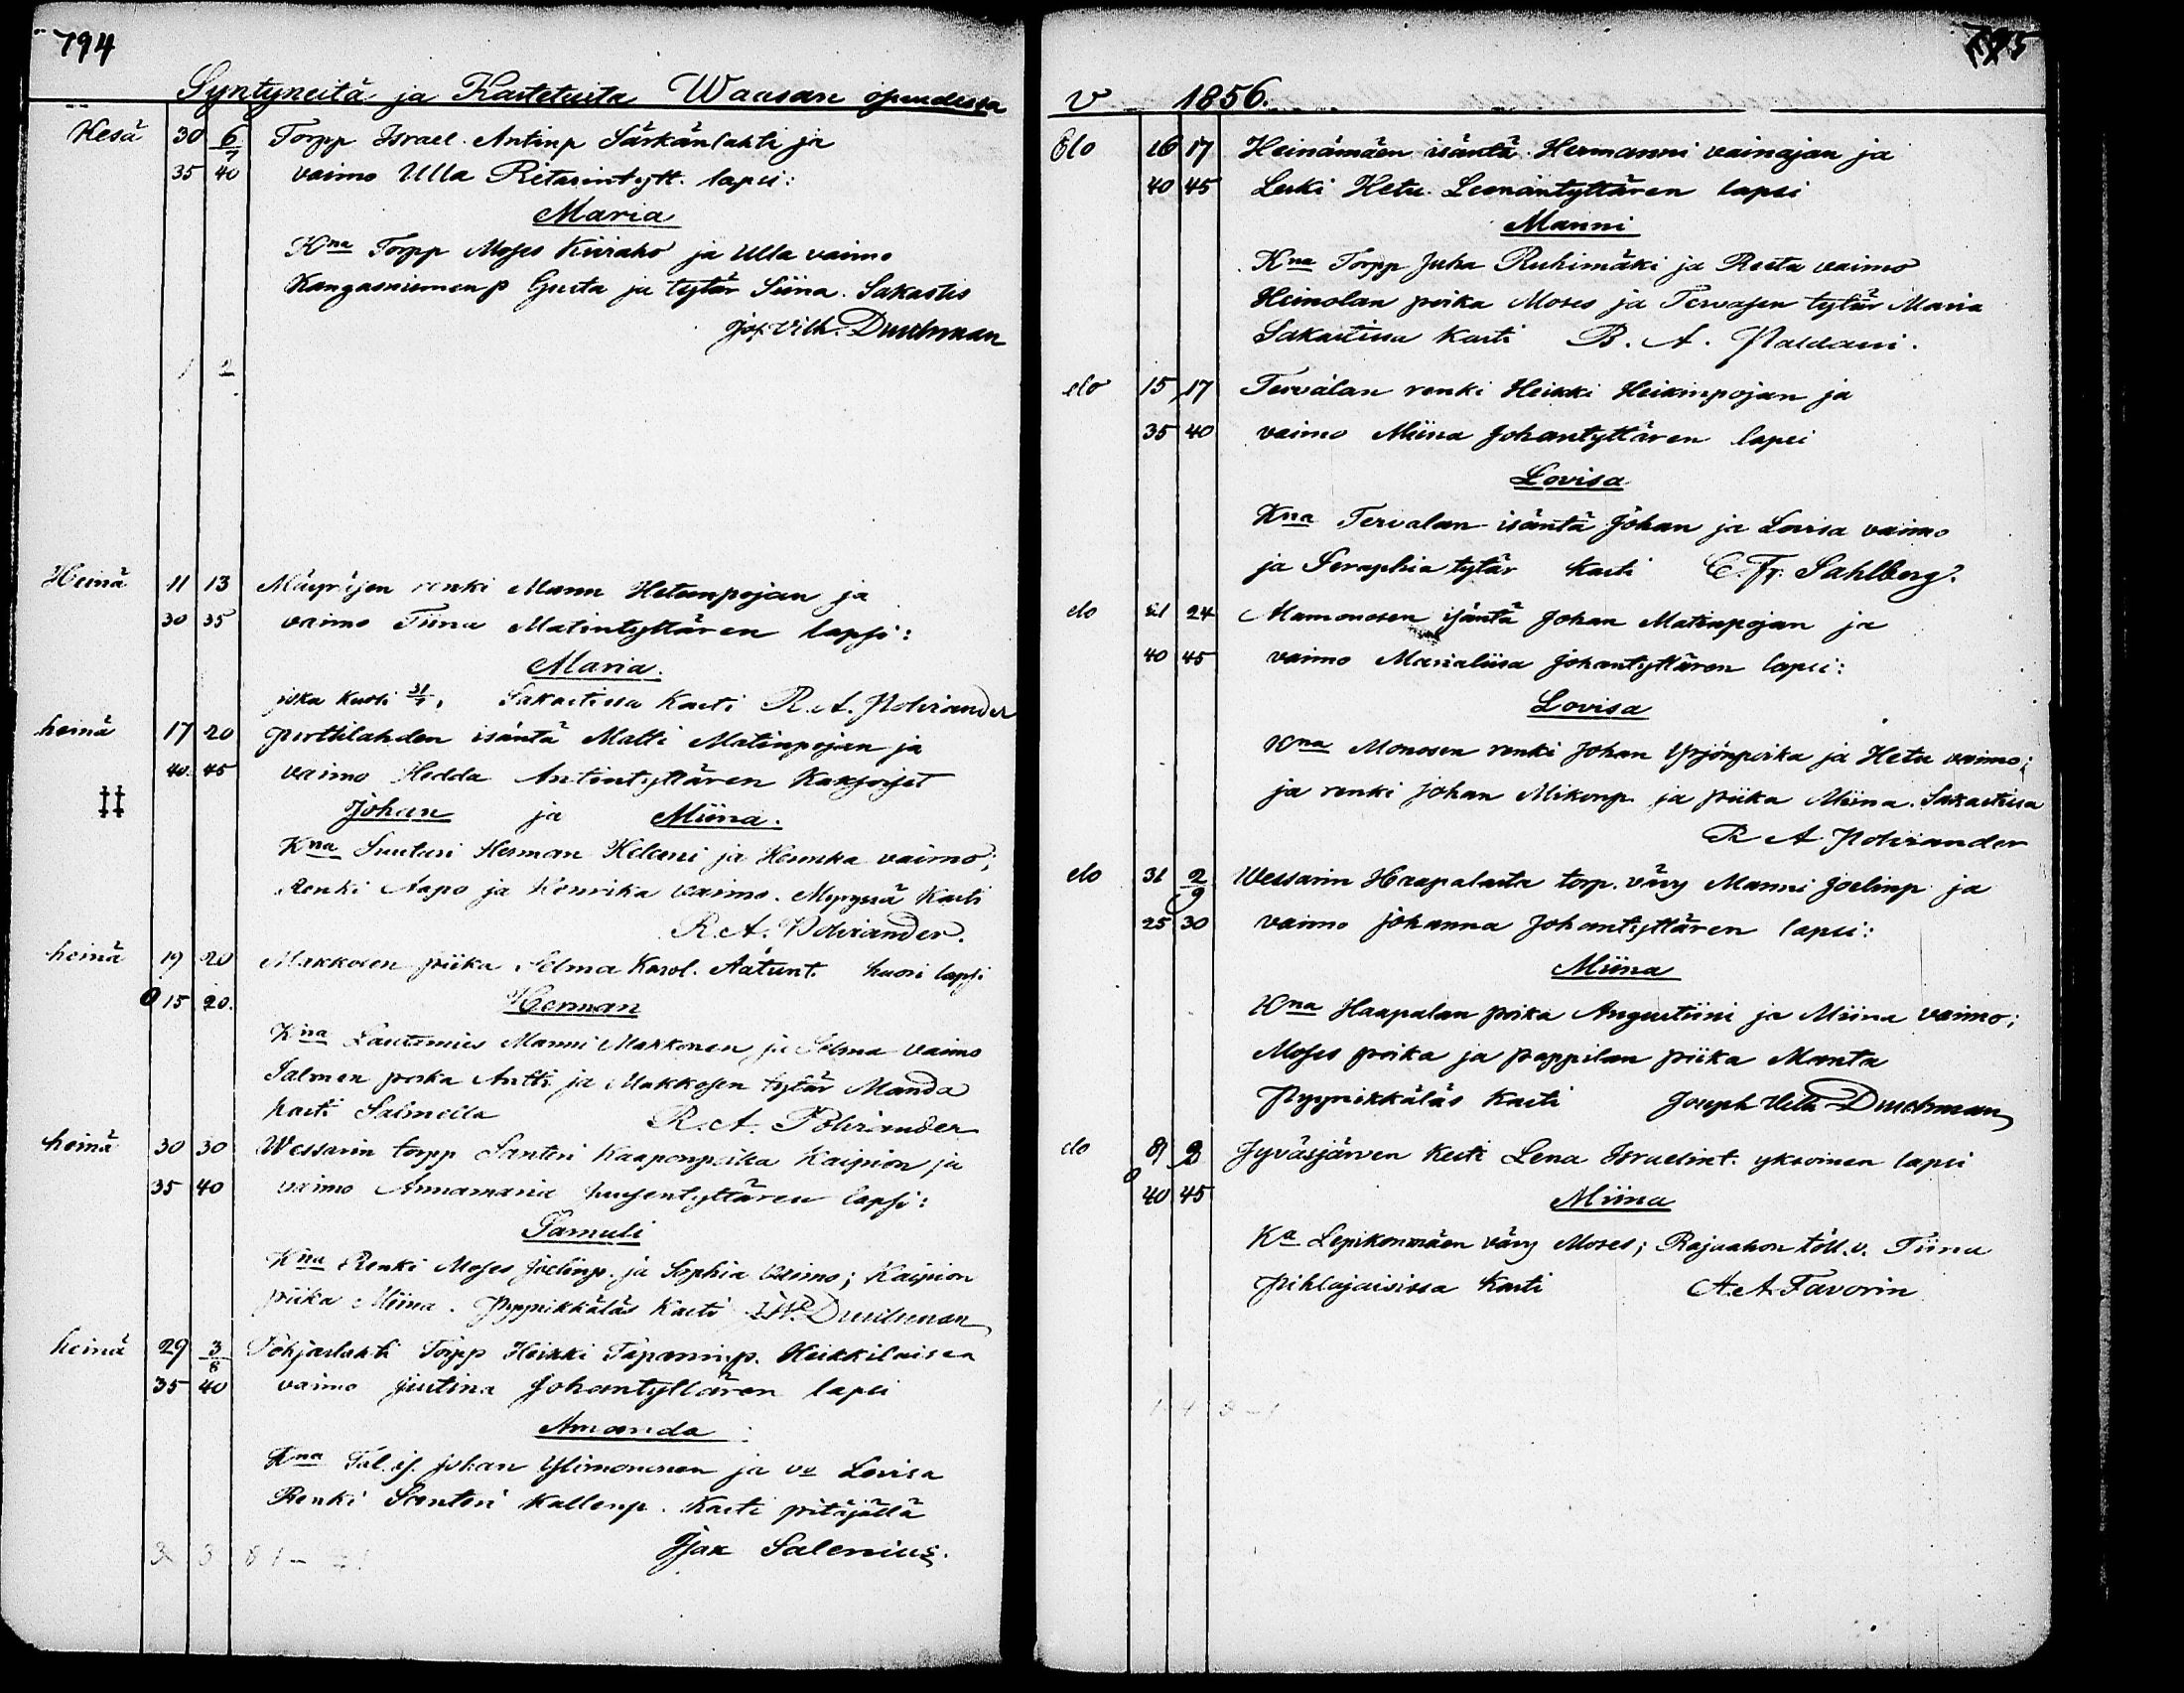 794
Syntyneitä ja Kastetuita Waasan opeudessa
Kesä 30 6/7 Torpp Israel Antinp Särkänlahti ja
35 40 vaimo Ulla Ritarintytt. lapsi:
Maria
Kna Torpp Moses Kiiraho ja Ulla vaimo
Kangasniemen p Gusta ja tytär Siina. Sakastis
Jos. Vilh. Durchman
Heinä 11 13 Mäyräjen renki Mann Hetunpojan ja
30 35 vaimo Tiina Matintyttären lapsi:
Maria.
joka kuoli 31/7, Sakastissa Kasti R. A. Polviander
heinä 17 20 Perttilahden isäntä Matti Matinpojan ja
40 45 vaimo Hedda Antintyttären Kaksoiset
‡‡ Johan ja Miina.
Kna Suutari Herman Heleni ja vaimo;
Renki Aapo ja Henrika vaimo. Kasti
R. A. Polviander.
heinä 19 20 Makkosen piika Selma Karol. Aatunt. huori lapsi
0 15 20. Herman
Kna Lautamies Manni Makkonen ja Selma vaimo
Salmen poika Antti ja Makkosen tytär Manda
kasti Salmella R. A. Polviander
heinä 30 30 Wessarin torpp Santeri Kaaponpoika Kaipion ja
35 40 vaimo Annamaria tyttären lapsi:
Samuli
Kna Renki Moses Joelinp. ja Sophia vaimo; Kaipion
piika Miina. Pyynikkäläs Kasti Durchman
heinä 29 3/8 Pohjaslahti Torpp Heikki Tapaninp. Heikkilaisen
35 40 vaimo Justina Johantyttären lapsi
Amanda
Kna Tal. is. Johan Ylimononen ja vo Lovisa
Renki Santeri Kallenp. Kasti pitäjällä
Isak Salenius.
795
v 1856.
Elo 16 17 Heinämäen isäntä Hermanni vainajan ja
40 45 Leski Hetu Leenantyttären lapsi
Manni
Kna Torpp Juha Ruhimäki ja Reeta vaimo
Heinolan poika Moses ja Tervasen tytär Maria
Sakastissa Kasti B. A. Paldani.
elo 15 17 Tervalan renki Heikki Heikinpojan ja
35 40 vaimo Miina Johantyttären lapsi
Lovisa
Kna Tervalan isäntä Johan ja Lovisa vaimo
ja Seraphia tytär Kasti C. Fr. Sahlberg.
elo 21 24 Mamonosen isäntä Johan Matinpojan ja
40 45 vaimo Marialiisa Johantyttären lapsi:
Lovisa
Kna Monosen renki Johan Yrjönpoika ja Hetu vaimo;
ja renki Johan Mikonp. ja piika Miina. Sakastissa
R A Polviander
elo 31 2/9 Wessarin Haapalasta torp. vävy Manni Joelinp ja
25 30 vaimo Johanna Johantyttären lapsi:
Miina
Kna Haapalan poika Augustiini ja Miina vaimo;
Moses poika ja pappilan piika Manta
Pyynikkäläs Kasti Joseph Vilh Durchman
elo 31 2 Jyväsjärven Leski Lena Israelint. yksoinen lapsi
0 40 45 Miina
Ka Lepikonmäen vävy Moses; Rajaahon töll. v. Tiina
Pihlajaisissa Kasti A. A. Favorin